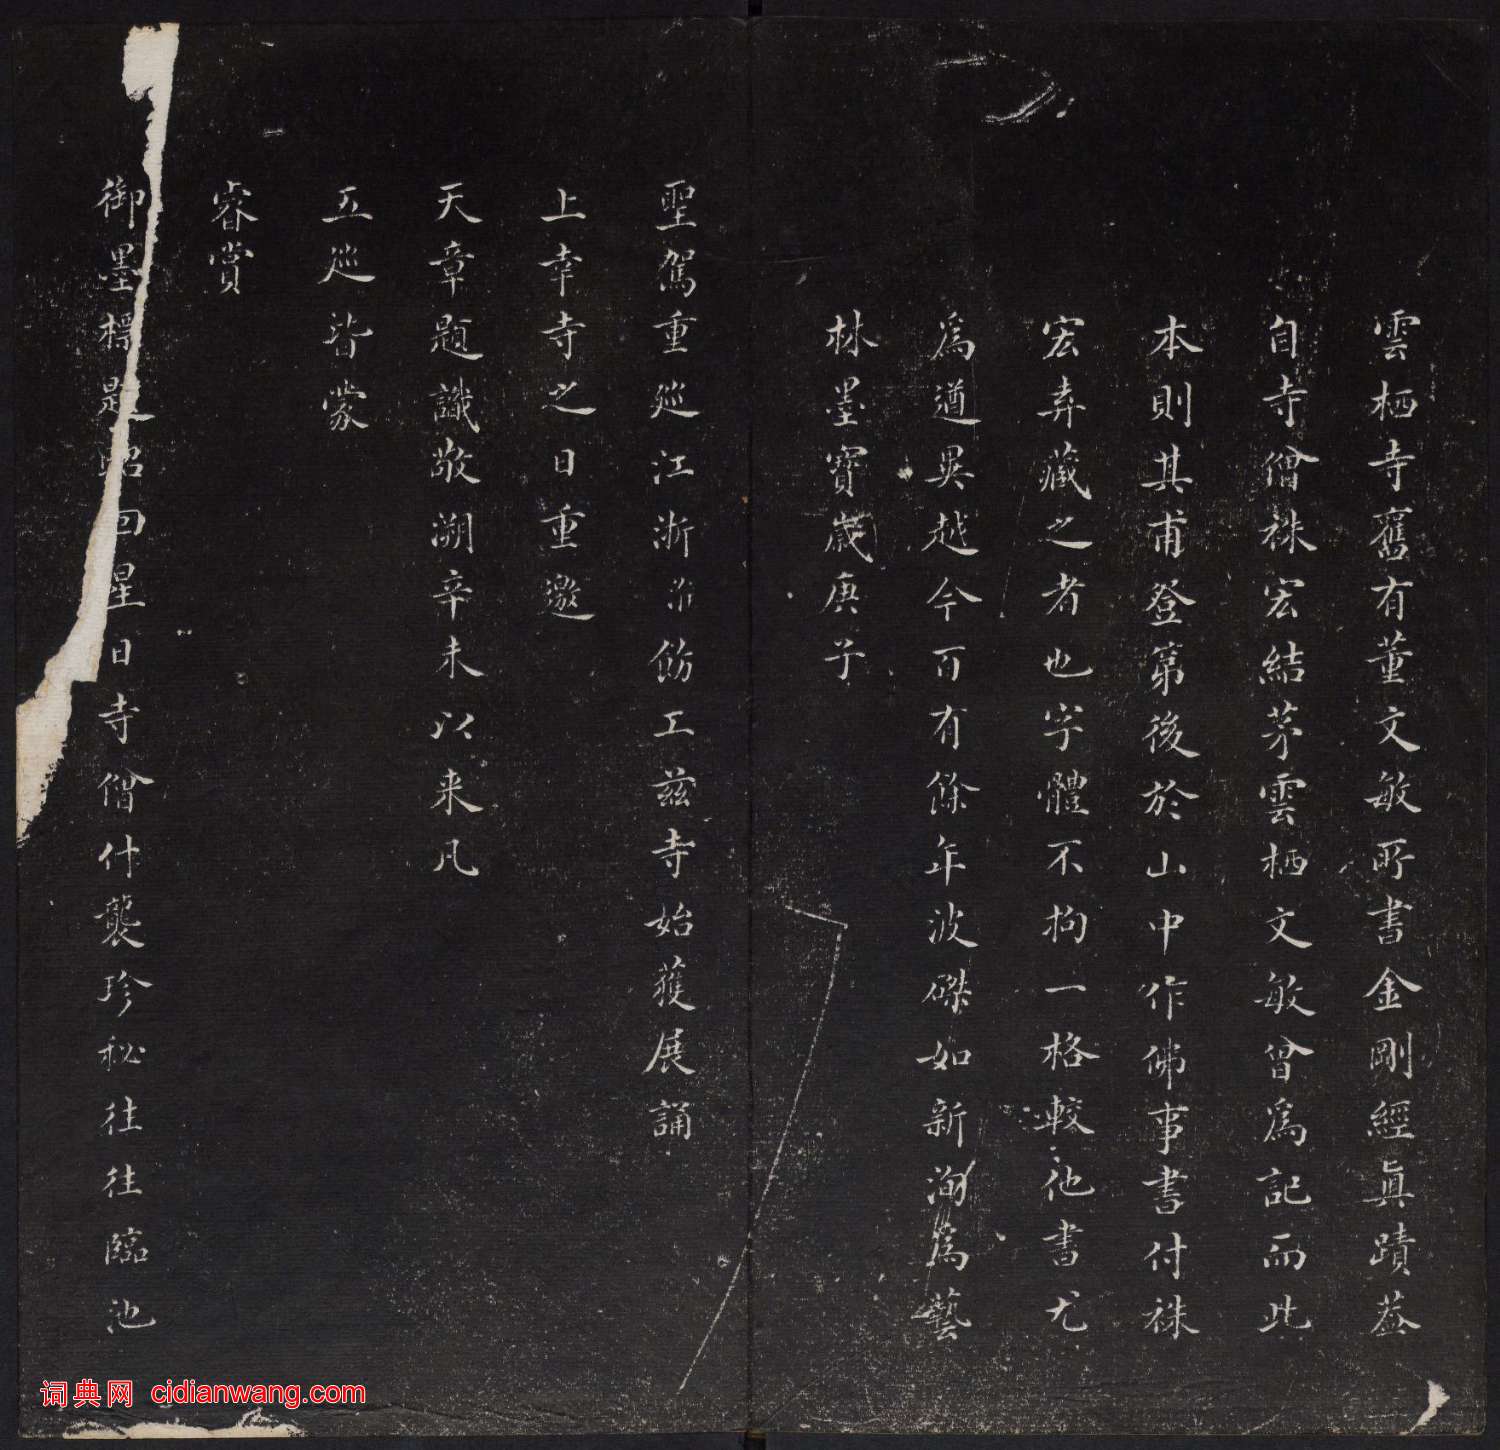 雲栖寺舊有董文敏所書金剛經眞蹟葢
自寺僧袾宏結茅雲栖文敏曾爲記而此
本則其甫登第後於山中作佛事書付袾
宏弆藏之者也字體不拘一格較他書尤
爲遒異越今百有餘年波磔如新洵爲藝
林墨寶歲庚子
聖駕重巡江浙命飭工茲寺始獲展誦
上幸寺之日重邀
天章題識敬溯辛未以来凡
五巡皆蒙
睿賞
御墨標題昭回星日寺僧什襲珍秘往往臨池
词典网 cidianwang.com